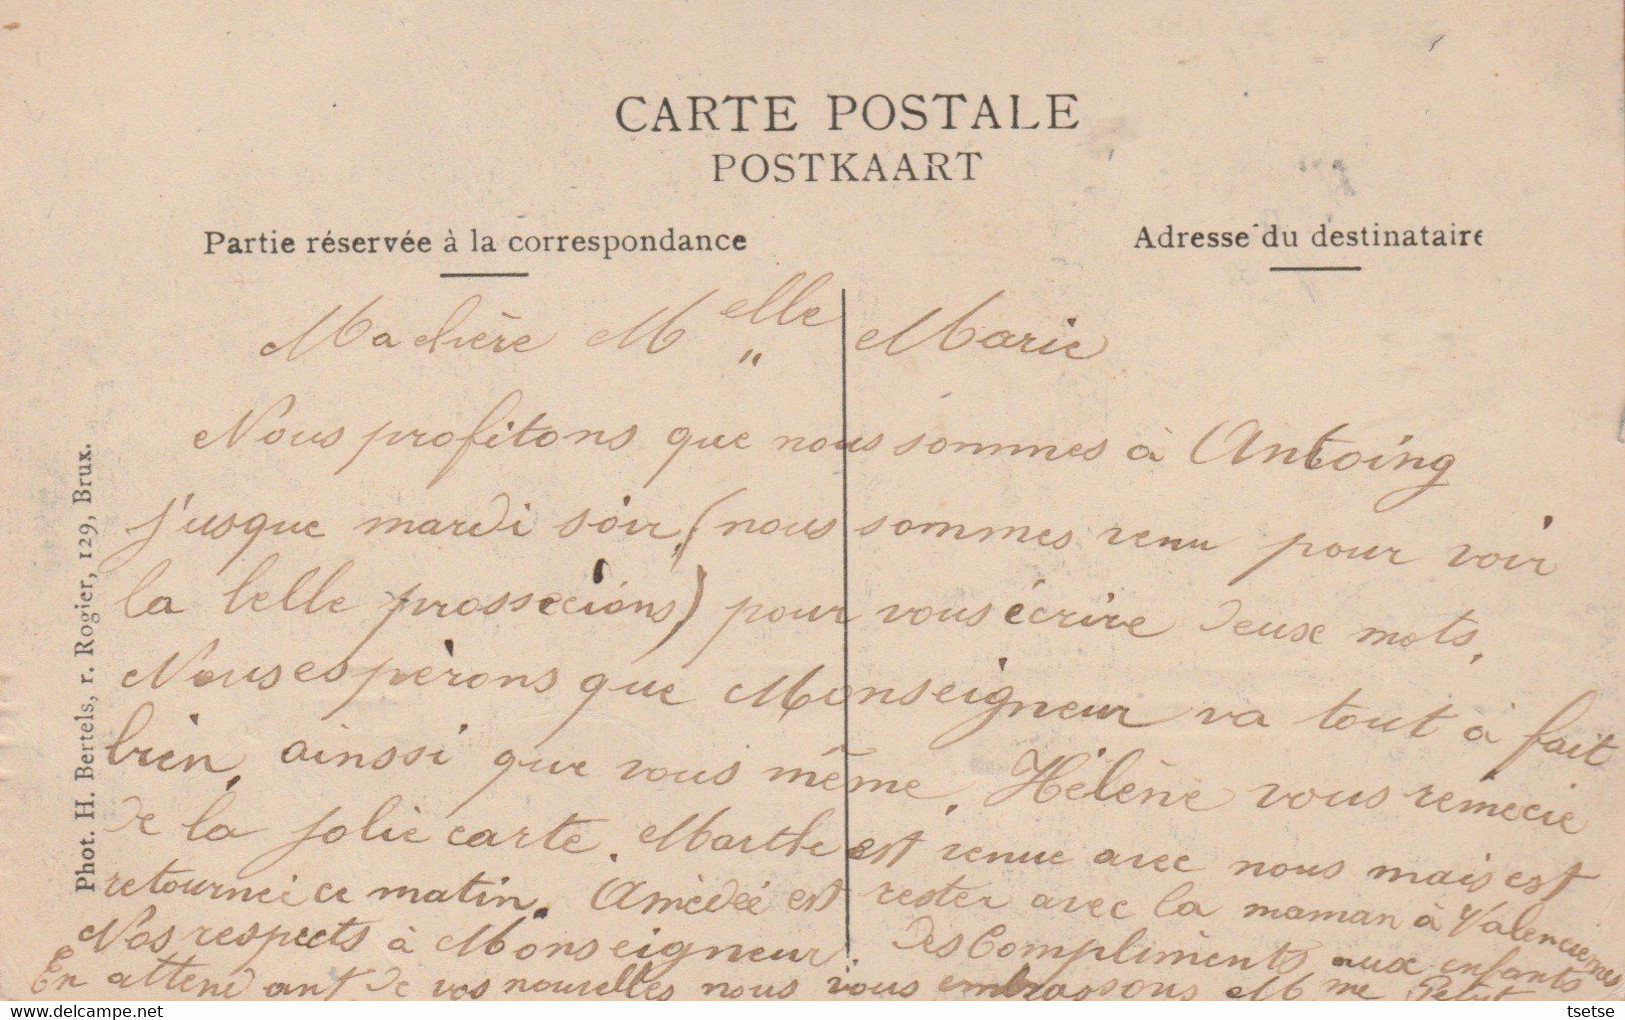 CARTE POSTALE
POSTKAART
Partie réservée à la correspondance
Adresse du destinataire
Ma chère Melle Marie
Nous profitons que nous sommes à Antoing
jusque mardi soir, (nous sommes venu pour voir
la belle prossecions) pour vous écrire deux mots.
Nous espèrons que Monseigneur va tout à fait
bien, ainssi que vous même. Hélène vous remecie
de la jolie carte. Marthe est venue avec nous mais est
retournei ce matin. Amèdée est rester avec la maman à Valenciennes
Nos respects à Monseigneur. Des Compliments aux enfants
En attend ant de vos nouvelles nous vous embrassons Mme Petit
Phot. H. Bertels, r. Rogier, 129, Brux.
www.delcampe.net
tsetse